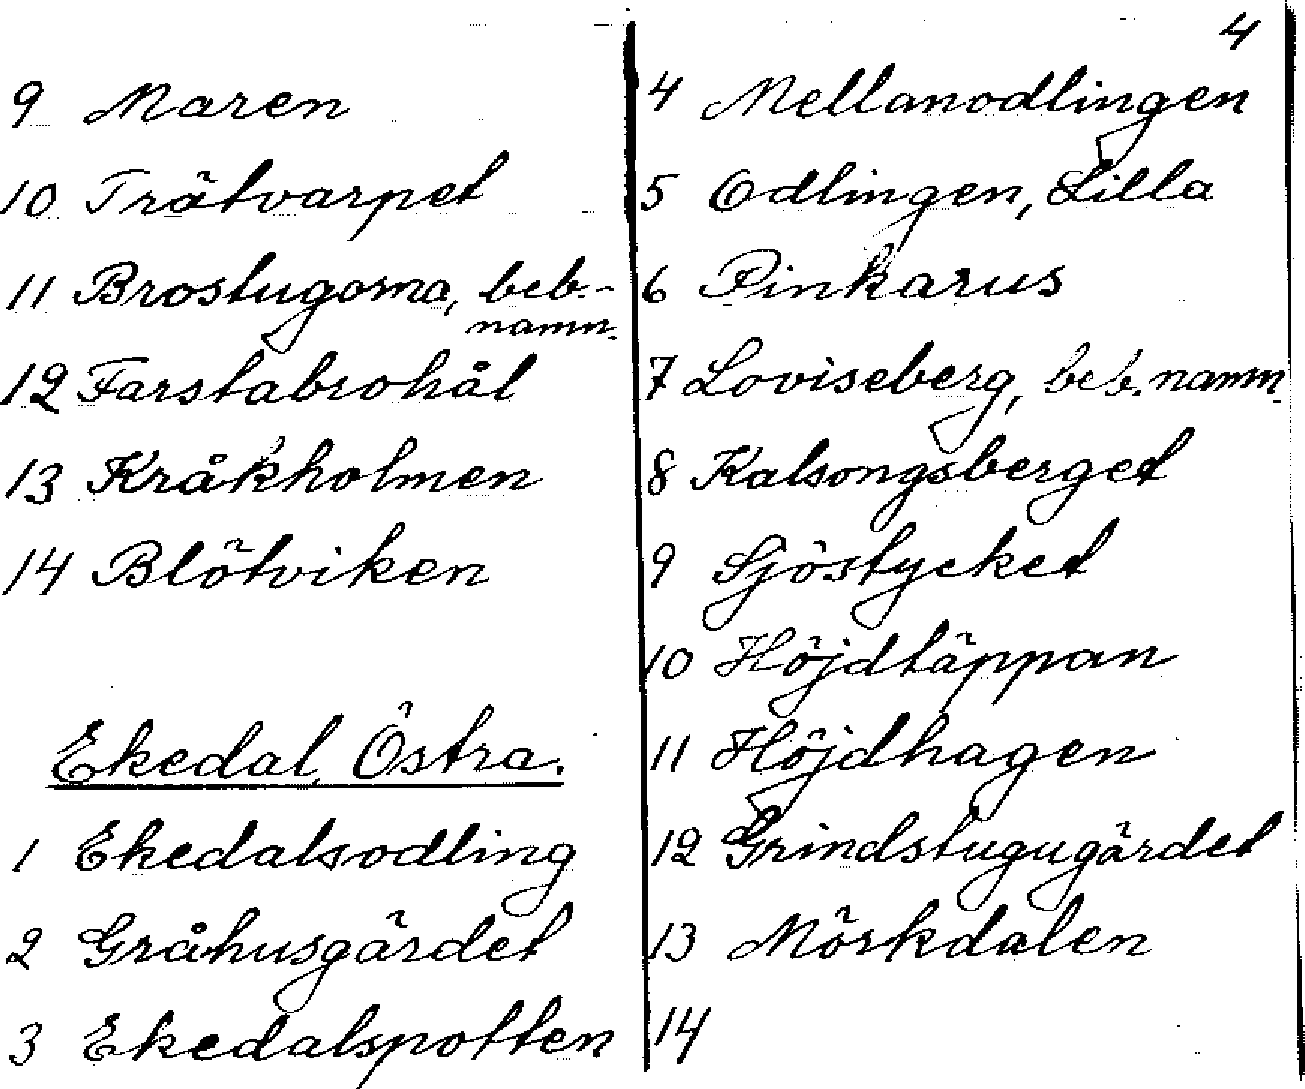 4
9 Maren
10 Trätvarpet
11 Brostugorna, beb.-
namn.
12 Farstabrohål
13 Kråkholmen
14 Blötviken
Ekedal Östra.
1 Ekedalsodling
2 Gråhusgärdet
3 Ekedalspotten
4 Mellanodlingen
5 Odlingen, Lilla
6 Pinkarus
7 Loviseberg, beb. namn.
8 Kalsongsberget
9 Sjöstycket
10 Höjdtäppan
11 Höjdhagen
12 Grindstugugärdet
13 Mörkdalen
14